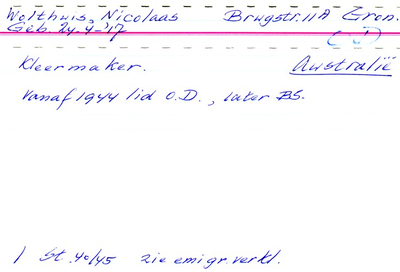 Wolthuis, Nicolaas Brugstr. 11A Gron.
Geb. 24-4-'17
Kleermaker. Australië
vanaf 1944 lid O.D., later BS.
1 St. 40/45 zie emigr. verkl.